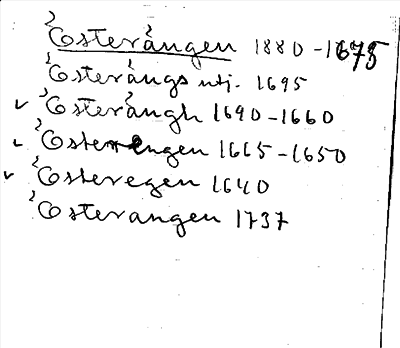 Österängen 1880-1675
Österängs utj. 1695
✓ Österängh 1690-1660
✓ Osterengen 1665-1650
✓ Osteregen 1640
Osterangen 1737